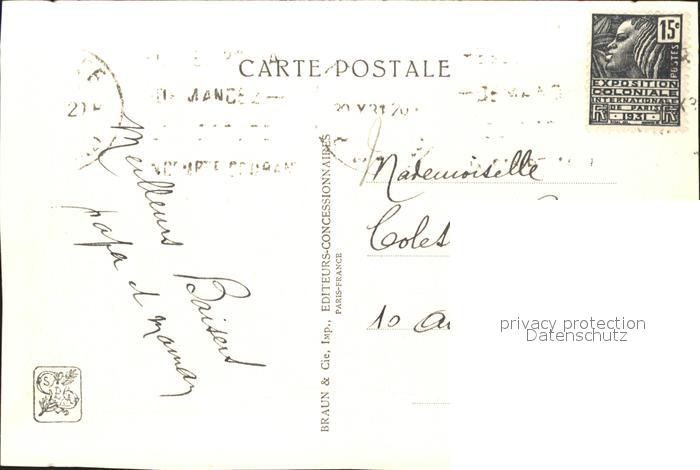 CARTE POSTALE
15c
POSTES
EXPOSITION
COLONIALE
INTERNATIONALE
DE PARIS
1931
MANDEZ
Meilleurs Baisers
papa et maman
BRAUN & Cie, Imp., EDITEURS-CONCESSIONNAIRES
PARIS-FRANCE
Mademoiselle
Colet
10
privacy protection
Datenschutz